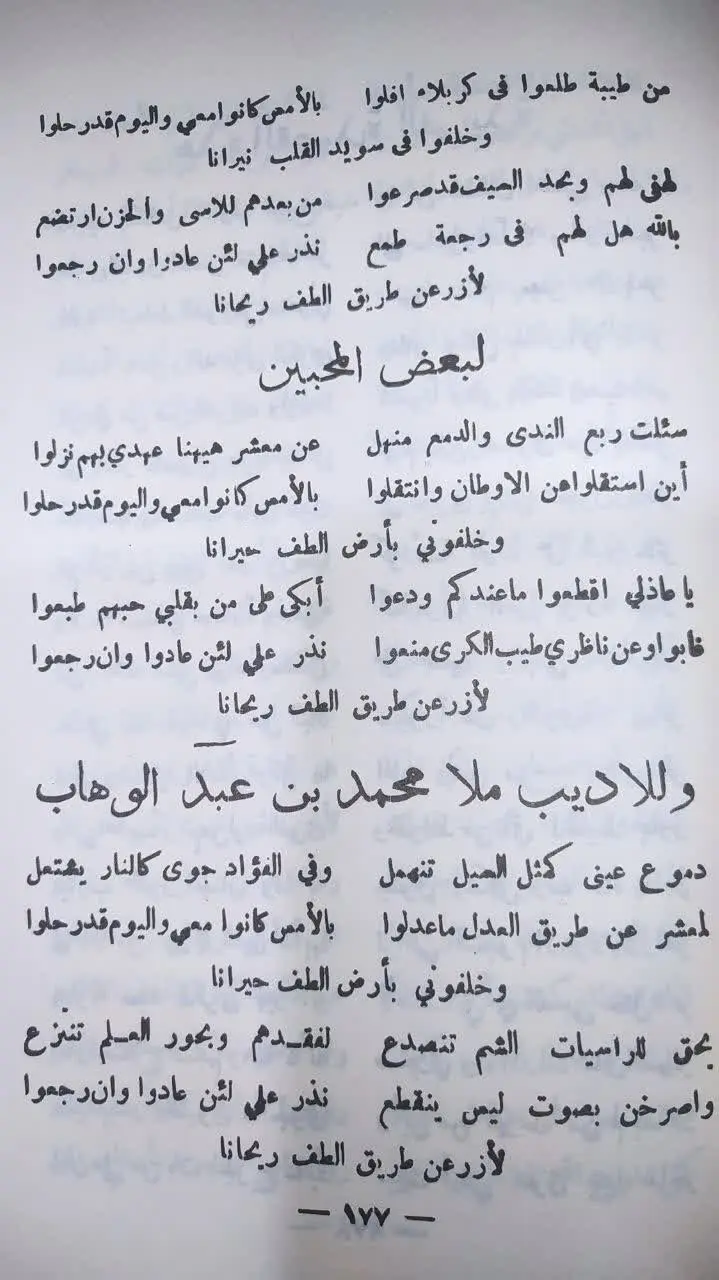 من طيبة طلعوا في كربلاء افلوا بالأمس كانوا معي واليوم قدر حلوا
وخلفوا في سويد القلب نيرانا
لهفي لهم وبحد السيف قد صرعوا من بعدهم للاسى والحزن ارتضع
بالله هل لهم في رجعة طمع نذر علي لئن عادوا وان رجعوا
لأزرعن طريق الطف ريحانا
لبعض المحبين
سئلت ربع الندى والدمع منهل عن معشر هيهنا عهدي بهم نزلوا
أين استقلوا عن الاوطان وانتقلوا بالأمس كانوا معي واليوم قدر حلوا
وخلفوني بأرض الطف حيرانا
يا عاذلي اقطعوا ما عندكم ودعوا أبكى على من بقلبي حبهم طبعوا
غابوا وعن ناظري طيب الكرى منعوا نذر علي لئن عادوا وان رجعوا
لأزرعن طريق الطف ريحانا
وللاديب ملا محمد بن عبد الوهاب
دموع عينى كمثل السيل تنهمل وفي الفؤاد جوى كالنار يشتعل
لمعشر عن طريق العدل ما عدلوا بالأمس كانوا معي واليوم قدر حلوا
وخلفوني بأرض الطف حيرانا
بحق للراسيات الشم تنصدع لفقـدهم وبحور العـلم تنزع
واصرخن بصوت ليس ينقطع نذر علي لئن عادوا وان رجعوا
لأزرعن طريق الطف ريحانا
— ١٧٧ —